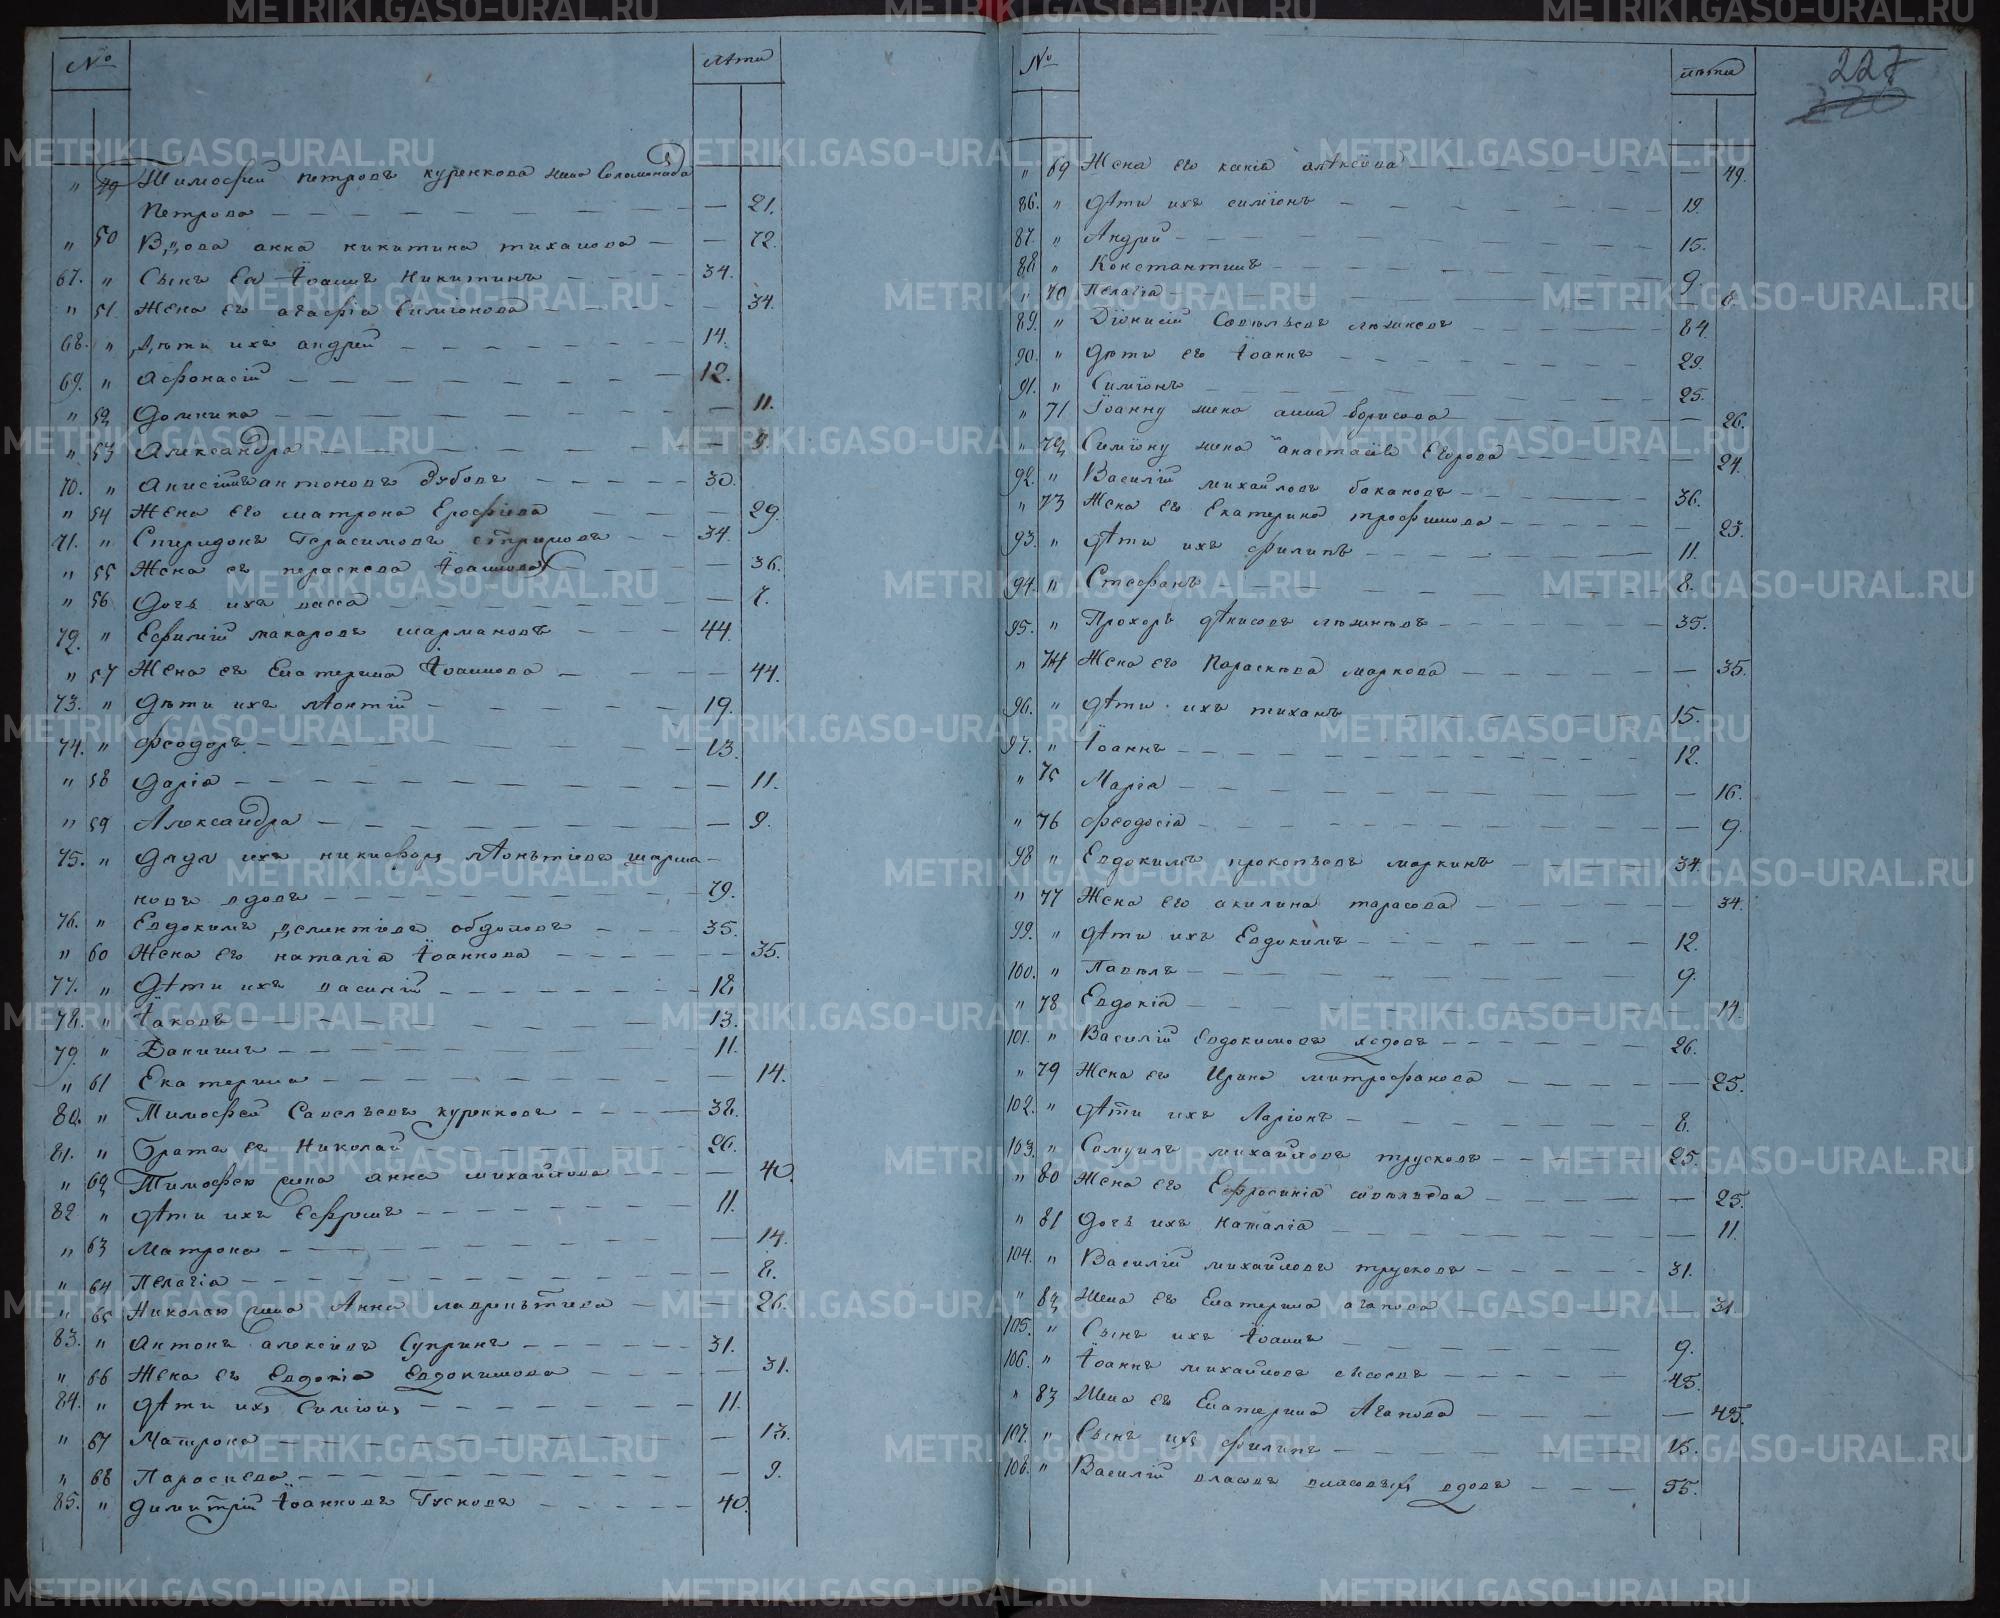 № лѣта
" 49 Тимофей петровъ куренкова жена Соломонида
Петрова — — 21.
" 50 Вдова анна никитина тиханова — — 72.
67. " Сынъ Ея Іоаннъ Никитинъ — 34.
" 51 Жена Его агафія Симіонова — — 34.
68. " Дѣти ихъ андрей — 14.
69. " Афонасій — 12.
" 52 Домника — — 11.
" 53 Александра — — 9.
70. " Анисимъ антоновъ Зубовъ — 30.
" 54 Жена Его матрона Ерофіева — — 29.
71. " Спиридонъ Герасимовъ — 34.
" 55 Жена Его параскева Іоаннова — — 36.
" 56 Дочь ихъ васса — — 7.
72. " Ефимій макаровъ шармановъ — 44.
" 57 Жена Его Екатерина Іоаннова — — 44.
73. " Дѣти ихъ лѣонтій — 19.
74. " Феодоръ — 13.
" 58 Дарія — — 11.
" 59 Александра — — 9.
75. " Дядя ихъ никифоръ лѣонтіевъ шарма-
новъ вдовъ — 79.
76. " Евдокимъ — 35.
" 60 Жена Его наталія Іоаннова — — 35.
77. " Дѣти ихъ василій — 18.
78. " Іаковъ — 13.
79. " Данiилъ — 11.
" 61 Екатерина — — 14.
80. " Тимофей Савельевъ куренковъ — 38.
81. " Братъ Его Николай — 26.
" 62 Тимофею жена анна михайлова — — 40.
82 " Дѣти ихъ Ефремъ — 11.
" 63 Матрона — — 14.
" 64 Пелагіа — — 8.
" 65 Николаю жена Анна лаврентіева — — 26.
83. " Антонъ алексіевъ Супринъ — 31.
" 66 Жена Его Евдокіа Евдокимова — — 31.
84. " Дѣти ихъ Симіонъ — 11.
" 67 Матрона — — 13.
" 68 Параскева — — 9.
85. " Димитрій Іоанновъ Гусковъ — 40.
№ лѣта 227
226
" 69 Жена Его ксеніа алѣксѣива — — 49.
86. " Дѣти ихъ симіонъ — 19.
87. " Андрей — 15.
88 " Константинъ — 9.
" 70 Пелагіа — — 6.
89. " Діонисій Савельевъ — 84.
90. " Дѣти Его Іоаннъ — 29.
91. " Симіонъ — 25.
" 71 Іоанну жена анна борисова — — 26.
" 72 Симіону жена анастасіа Егорова — — 24.
92. " Василій михайловъ бакановъ — 36.
" 73 Жена Его Екатерина трофимова — — 23.
93. " Дѣти ихъ филипъ — 11.
94. " Стефанъ — 8.
95. " Прохоръ дѣнисовъ — 35.
" 74 Жена Его Параскѣва маркова — — 35.
96. " Дѣти ихъ тиханъ — 15.
97. " Іоаннъ — 12.
" 75 Маріа — — 16.
" 76 Феодосіа — — 9.
98 " Евдокимъ прокопьевъ маркинъ — 34.
" 77 Жена Его акилина тарасова — — 34.
99. " Дѣти ихъ Евдокимъ — 12.
100. " Павелъ — 9.
" 78 Евдокіа — — 14.
101. " Василій Евдокимовъ — 26.
" 79 Жена Его Ирина митрофанова — — 25.
102. " Дѣти ихъ Ларіонъ — 8.
103. " Самуилъ михайловъ трусковъ — 25.
" 80 Жена Его Ефросиніа савельева — — 25.
" 81 Дочь ихъ наталіа — — 11.
104. " Василій михайловъ трусковъ — 31.
" 82 Жена Его Екатерина агапова — — 31.
105. " Сынъ ихъ Іоаннъ — 9.
106. " Іоаннъ михайловъ сысоевъ — 45.
" 83 Жена Его Екатерина Агапова — — 45.
107. " Сынъ ихъ филипъ — 15.
108. " Василій власовъ вдовъ — 55.
METRIKI.GASO-URAL.RU